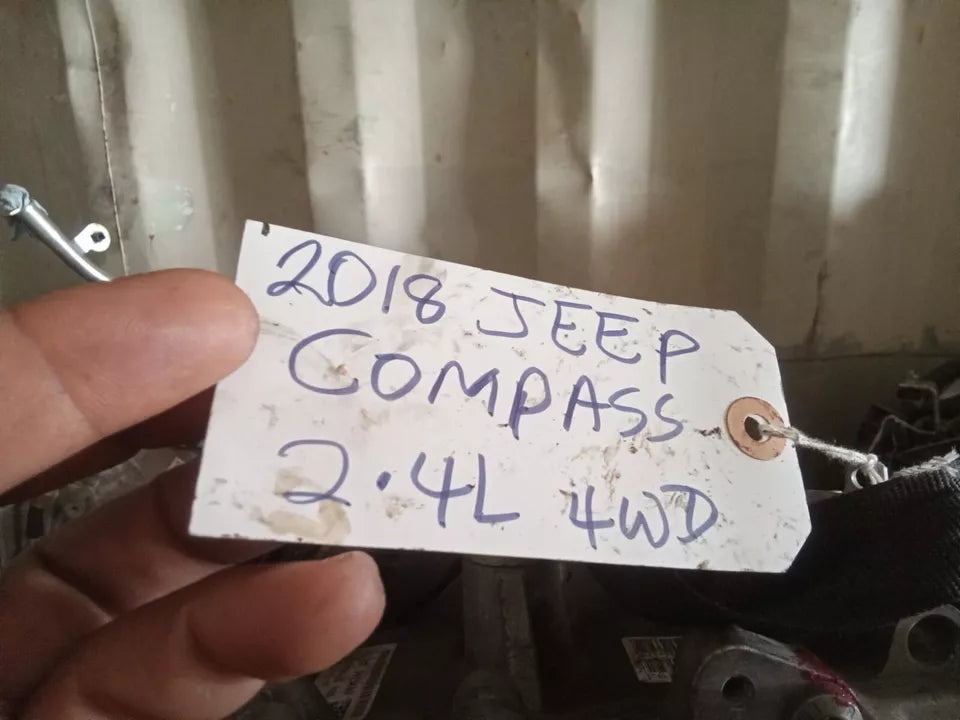 2018 JEEP
COMPASS
2.4L 4WD